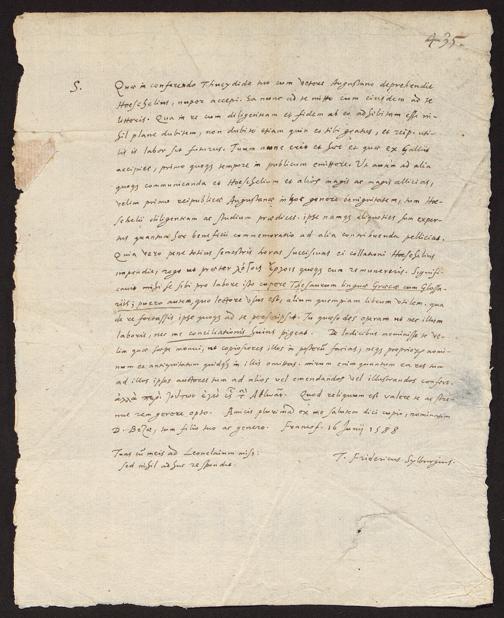 435.
S. Quae in conferendo Thucydide tuo cum vetere Augustano deprehendit
Hoeschelius, nuper accepi. Ea nunc ad te mitto cum eiusdem ad te
litteris. Qua in re cum diligentiam et fidem ab eo adhibitam esse ni-
hil plane dubitem, non dubito etiam quin et tibi gratus, et reip. uti-
lis is labor sit futurus. Tuum nunc erit et hoc et quae ex Galliis
accipies, primo quoque tempore in publicum emittere. Ut autem ad alia
quoque communicanda et Hoeschelium et alios magis ac magis allicias,
velim primo reipublicae Augustanae in hoc genere benignitatem, tum Hoe-
schelii diligentiam ac studium praedices. ipse namque aliquoties sum exper-
tus quantum hoc beneficii commemoratio ad alia contribuenda pelliciat.
Quia vero pene totius semestris horas succisivas ei collationi Hoeschelius
impendit, rogo ut praeter λόγοις ἔργοις quoque eum remunereris. Signifi-
cavit mihi se sibi pro labore isto cupere Thesaurum linguae Graecae cum Glossa-
riis; puero autem, quo lectore usus est, alium quempiam librum utilem. qua
de re fortassis ipse quoque ad te perscripsit. Tu quaeso des operam ut nec illum
laboris, nec me conciliationis huius pigeat. De Indicibus meminisse te ve-
lim quae saepe monui, ut copiosiores illos in posterum facias; neque propriorum nomi-
num ac antiquitatum quidquam in illis omittas. mirum enim quantum ea res tum
ad illos ipsos auctores tum ad alios vel emendandos vel illustrandos conferat.
ἀλλὰ περὶ τούτων Quod reliquum est valere te ac stre-
nue rem gerere opto. Amicis plurimam ex me salutem dici cupio, nominatim
D. Bezae, tum filio tuo ac genero. Francof. 16 Junij 1588
Tuas cum meis ad Leonclaium misi:
sed nihil adhuc respondit.
T. Fridericus Sylburgius.